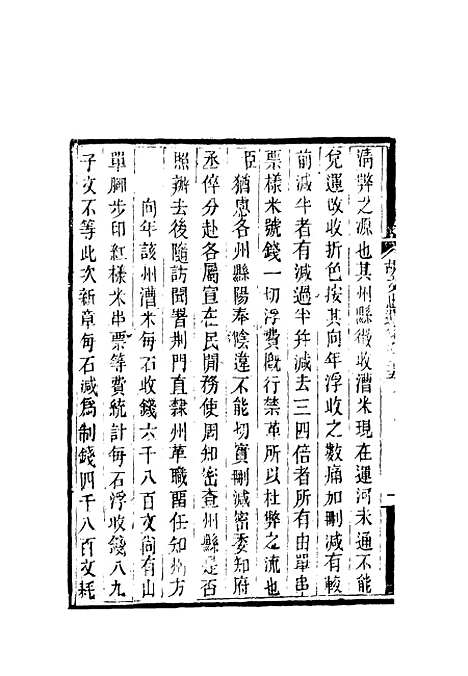 清弊之源也其州縣徵收漕米現在運河未通不能
兌運改收折色按其向年浮收之數痛加刪減有較
前減半者有減過半幷減去三四倍者所有由單串
票樣米號錢一切浮費概行禁革所以杜弊之流也
臣猶恐各州縣陽奉陰違不能切實刪減密委知府
丞倅分赴各屬宣在民閒務使周知密查州縣是否
照辦去後隨訪聞署荆門直隸州革職留任知州方
向年該州漕米每石收錢六千八百文尙有山
單腳步印紅樣米串票等費統計每石浮收錢八九
子文不等此次新章每石減爲制錢四千八百文耗